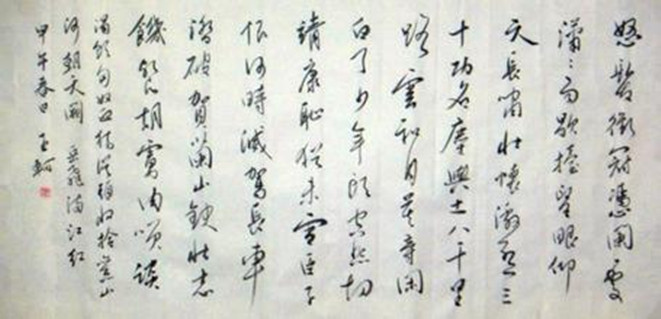 怒髮衝冠憑闌處
瀟瀟雨歇抬望眼仰
天長嘯壯懷激烈三
十功名塵與土八千里
路雲和月莫等閑
白了少年頭空悲切
靖康恥猶未雪臣子
恨何時滅駕長車
踏破賀蘭山缺壯志
饑餐胡虜肉笑談
渴飲匈奴血待從頭收拾舊山
河朝天闕 岳飛滿江紅
甲午春日 王